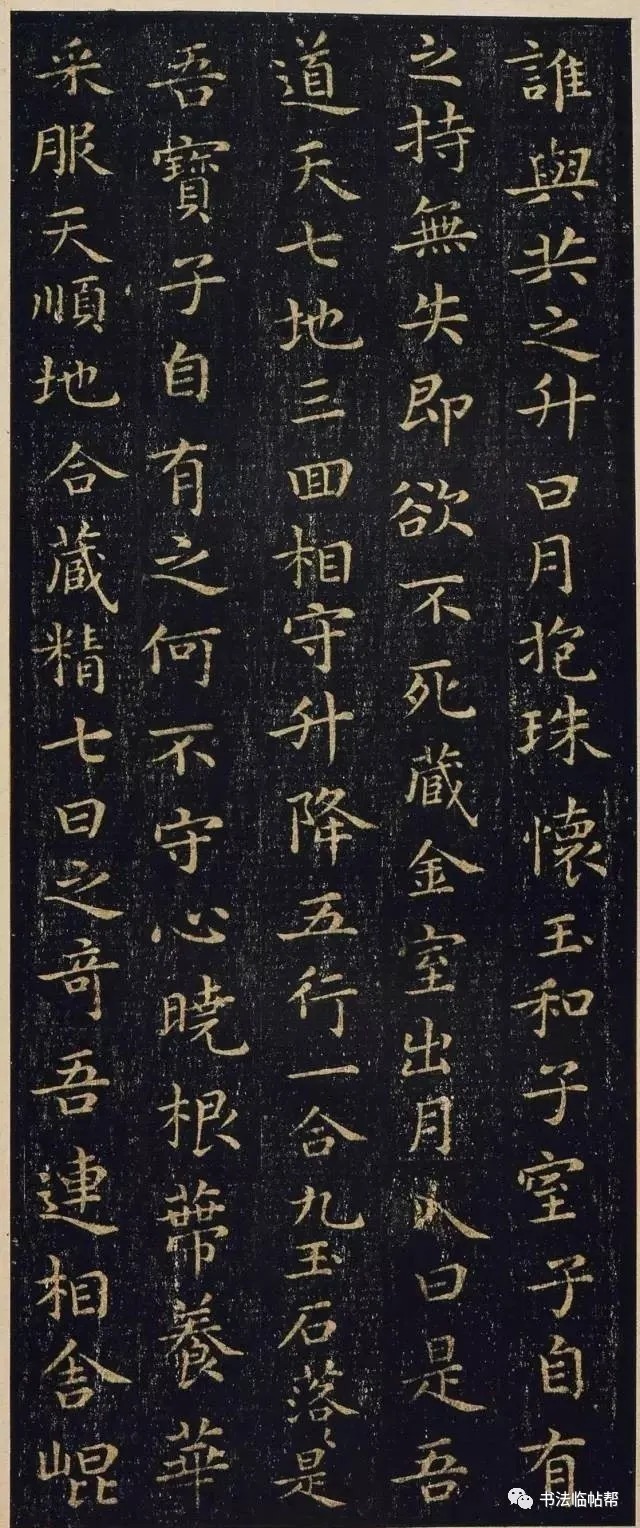 誰與共之升日月抱珠懷玉和子室子自有
之持無失即欲不死藏金室出月入日是吾
道天七地三回相守升降五行一合九玉石落〻是
吾寶子自有之何不守心曉根蔕養華
采服天順地合藏精七日之奇吾連相舍崐
书法临帖帮